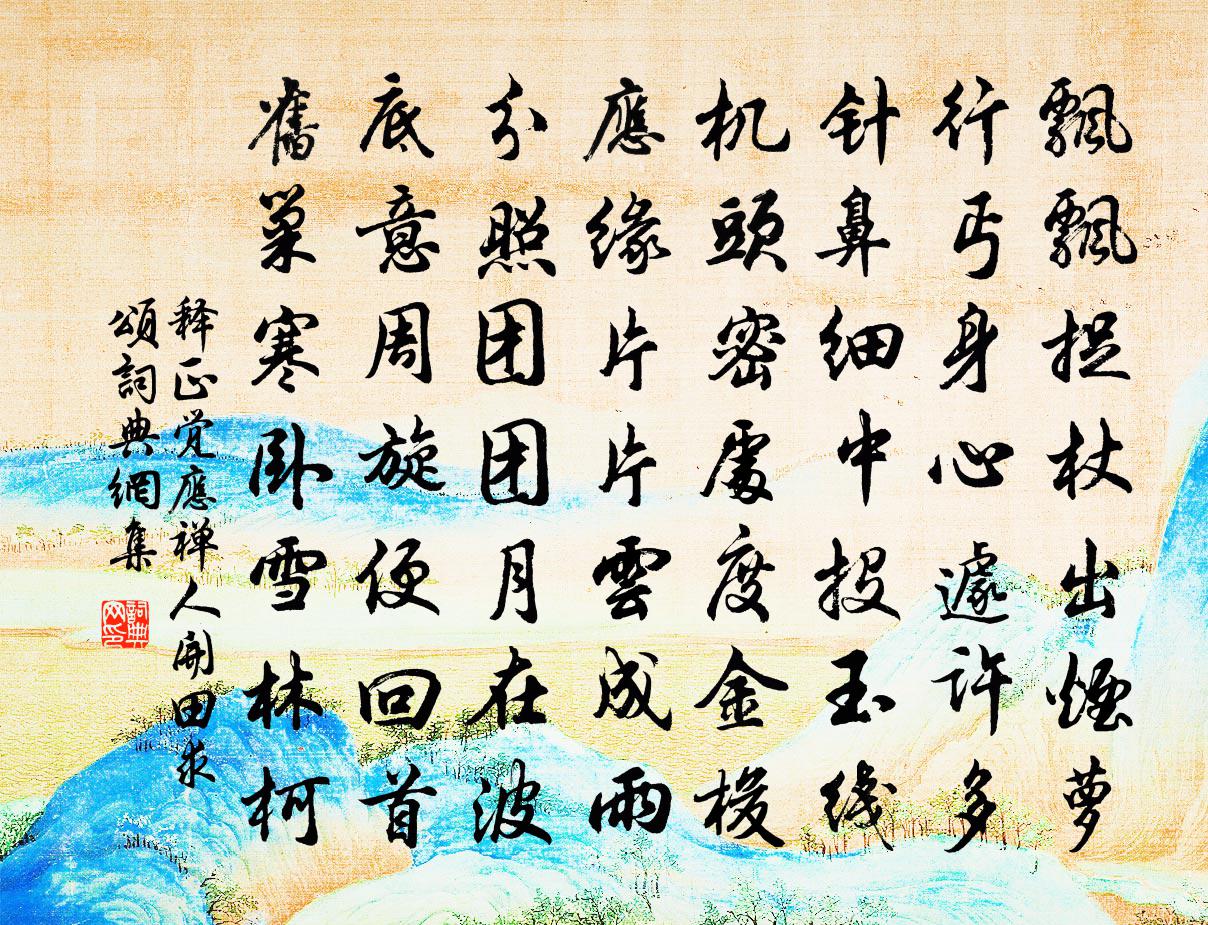 飄飄捉杖出煙萝
行丐身心遽许多
针鼻细中投玉线
机頭密處度金梭
應缘片片雲成雨
分照团团月在波
底意周旋便回首
舊巢寒卧雪林柯
释正觉應禅人開田求
頌詞典網集
詞典网印